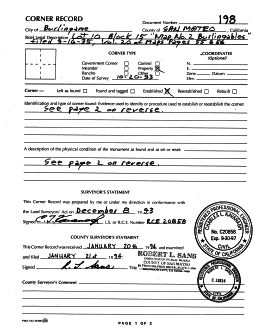 CORNER RECORD
Document Number 198
City of Burlingame County of SAN MATEO California
Brief Legal Description Lot 10, Block 15 "Map No. 2 Burlingables"
filed 9-16-35, Vol. 20 of Maps Pages 55 & 58
CORNER TYPE
COORDINATES
(Optional)
Government Corner Control N.
Meander Property E.
Rancho Other Zone Datum
Date of Survey 10-20-93 Elev.
Corner — Left as found Found and tagged Established Reestablished Rebuilt
Identification and type of corner found: Evidence used to identify or procedure used to establish or reestablish the corner:
See page 2 on reverse.
A description of the physical condition of the monument as found and as set or reset:
See page 2 on reverse.
SURVEYOR'S STATEMENT
This Corner Record was prepared by me or under my direction in conformance with
the Land Surveyors' Act on December 8, 1993
Signed L.S. or R.C.E. Number RCE 20858
COUNTY SURVEYOR'S STATEMENT
This Corner Record was received JANUARY 20th 1994 and examined
and filed JANUARY 21st 1994
Signed ROBERT L. SANS
COUNTY OF SAN MATEO
County Surveyor's Comment
REGISTERED PROFESSIONAL ENGINEER
No. C20858
Exp. 9-30-97
CIVIL
STATE OF CALIFORNIA
PAGE 1 OF 2